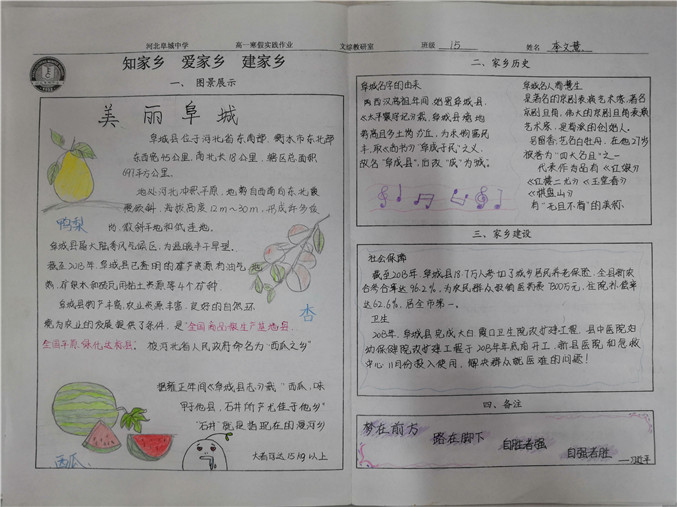 河北阜城中学 高一寒假实践作业 文综教研室 班级 15 姓名 李文慧
知家乡 爱家乡 建家乡
一、 图景展示
美丽阜城
阜城县位于河北省东南部，衡水市东北部
东西宽45公里，南北长18公里，辖区总面积
697平方公里。
地处河北冲积平原，地势自西南向东北
倾斜，海拔高度12m～30m，形成许多
岗、微斜平地和低洼地。
鸭梨
阜城县属大陆季风气候区，为温暖半干旱型。
截至2013年，阜城县已查明的矿产资源有油气、地
热、矿泉水和砖瓦用粘土资源等4个矿种。
阜城县物产丰富，农业资源丰富，良好的自然环
境为农业的发展提供了条件，是"全国商品粮生产基地县、
全国平原绿化达标县。 被河北省人民政府命名为"西瓜之乡"
杏
雍正年间《阜城县志》载 "西瓜，味
甲于他县，石井所产尤佳于他乡"
"石井"就是当现在的漫河乡
大者可达15kg以上
西瓜
二、家乡历史
阜城名字的由来
西汉高祖年间，始置阜城县，
《太平寰宇记》载，阜城县境地
势高且多土岗、方立，为求物富民
丰，取《尚书》"阜成于民"之义，
故名"阜成县"，后改"成"为城。
阜城名人荀慧生
是著名的京剧表演艺术家，著名
京剧旦角，伟大的京剧旦角表演
艺术家，是荀派的创始人。
号留香，艺名白牡丹，在他27岁
被誉为"四大名旦"之一
代表作品有《红娘》
《红楼二尤》《玉堂春》
《棋盘山》
有"无旦不荀"的美称
三、家乡建设
社会保障
截至2013年，阜城县18.7万人参加了城乡居民养老保险，全县新农
合参合率达96.2%，为农民群众报销医药费1300万元，住院补偿率
达62.6%，居全市第一。
卫生
2013年，阜城县完成大白、霞口卫生院改扩建工程，县中医院、妇
幼保健院改扩建工程于2013年年底前开工，新县医院和急救
中心11月份投入使用，解决群众就医难的问题！
四、备注
梦在前方
路在脚下
自胜者强
自强者胜
——习近平